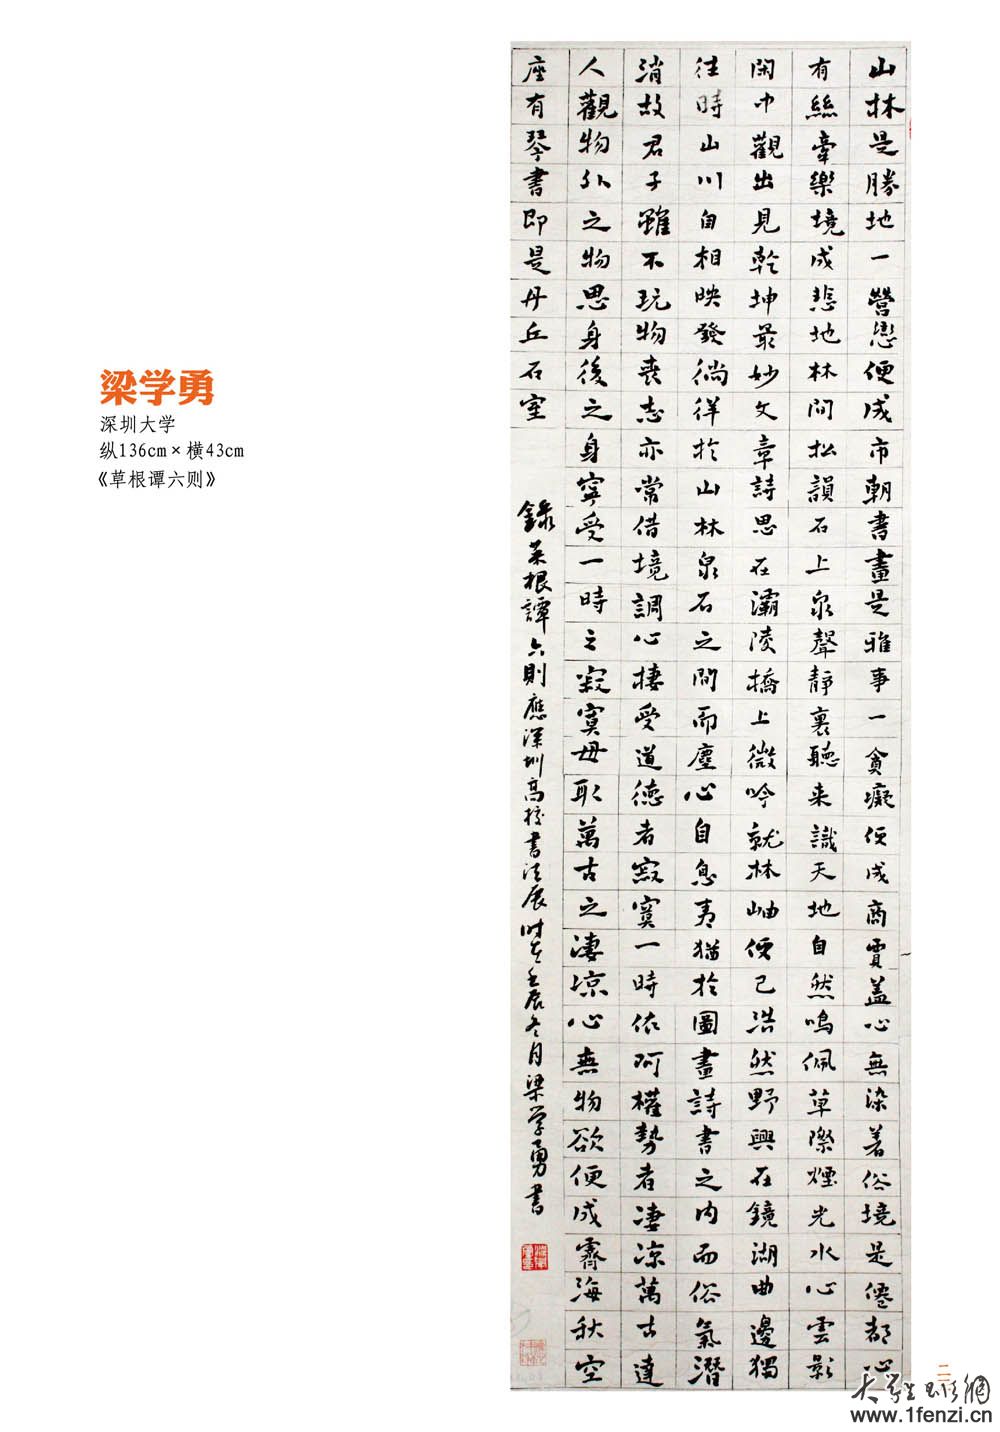 梁学勇
深圳大学
纵136cm×横43cm
《草根谭六则》
山林是勝地一營戀便成市朝書畫是雅事一貪癡便成商賈蓋心無染著俗境是僊都心
有絲牽樂境成悲地林間松韻石上泉聲靜裏聽来識天地自然鳴佩草際煙光水心雲影
閑中觀出見乾坤最妙文章詩思在灞陵橋上微吟就林岫便已浩然野興在鏡湖曲邊獨
往時山川自相映發徜徉於山林泉石之間而塵心自息夷猶於圖畫詩書之内而俗氣潛
消故君子雖不玩物喪志亦常借境調心棲受道德者寂寞一時依阿權勢者凄凉萬古達
人觀物外之物思身後之身寧受一時之寂寞毋取萬古之凄凉心無物欲便成霽海秋空
座有琴書即是丹丘石室
錄菜根譚六則應深圳高校書法展时在壬辰冬月梁学勇書
www.1fenzi.cn